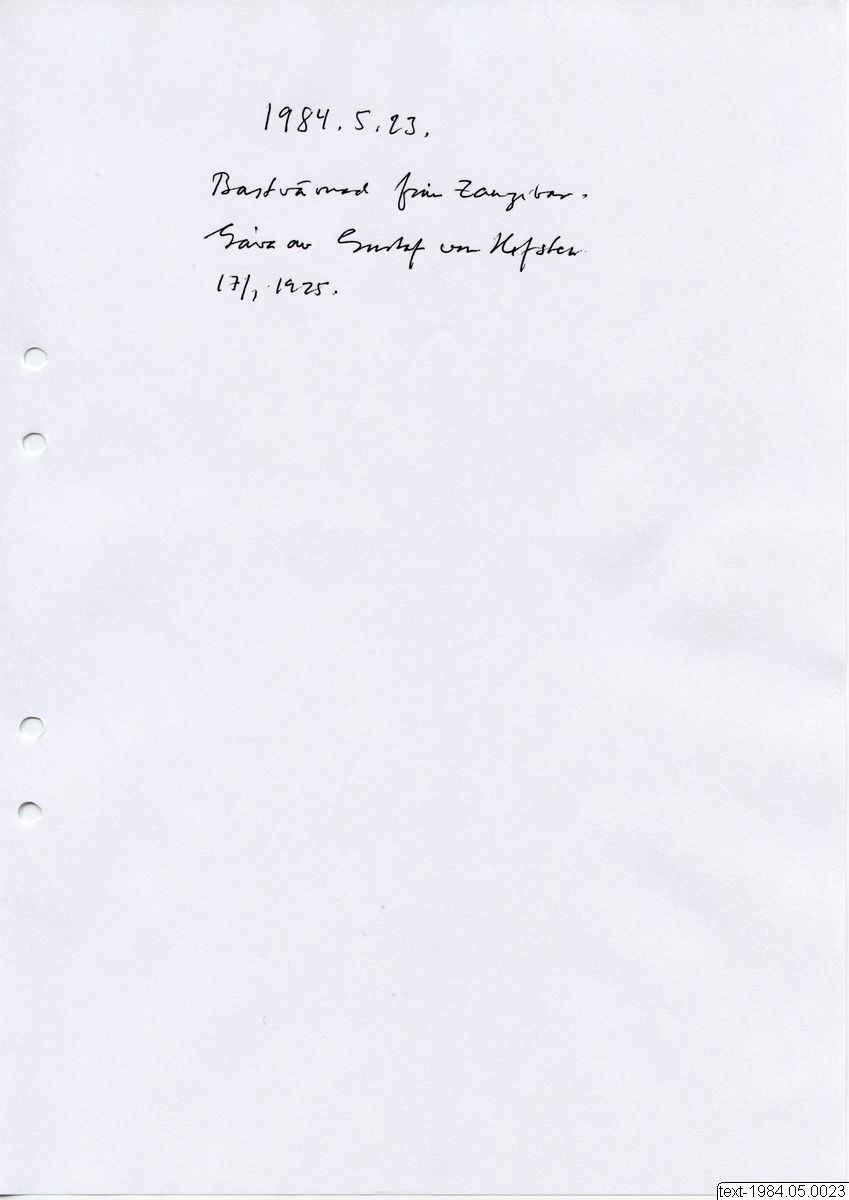 1984.5.23.
Bastvävnad från Zanzibar.
Gåva av Gustaf von Hofsten
17/1 1925.
text-1984.05.0023